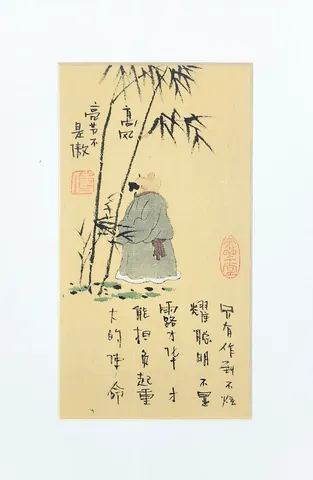 高风
亮节不
是傲
只有作到不炫
耀聪明不显
露才华才
能担负起重
大的使命